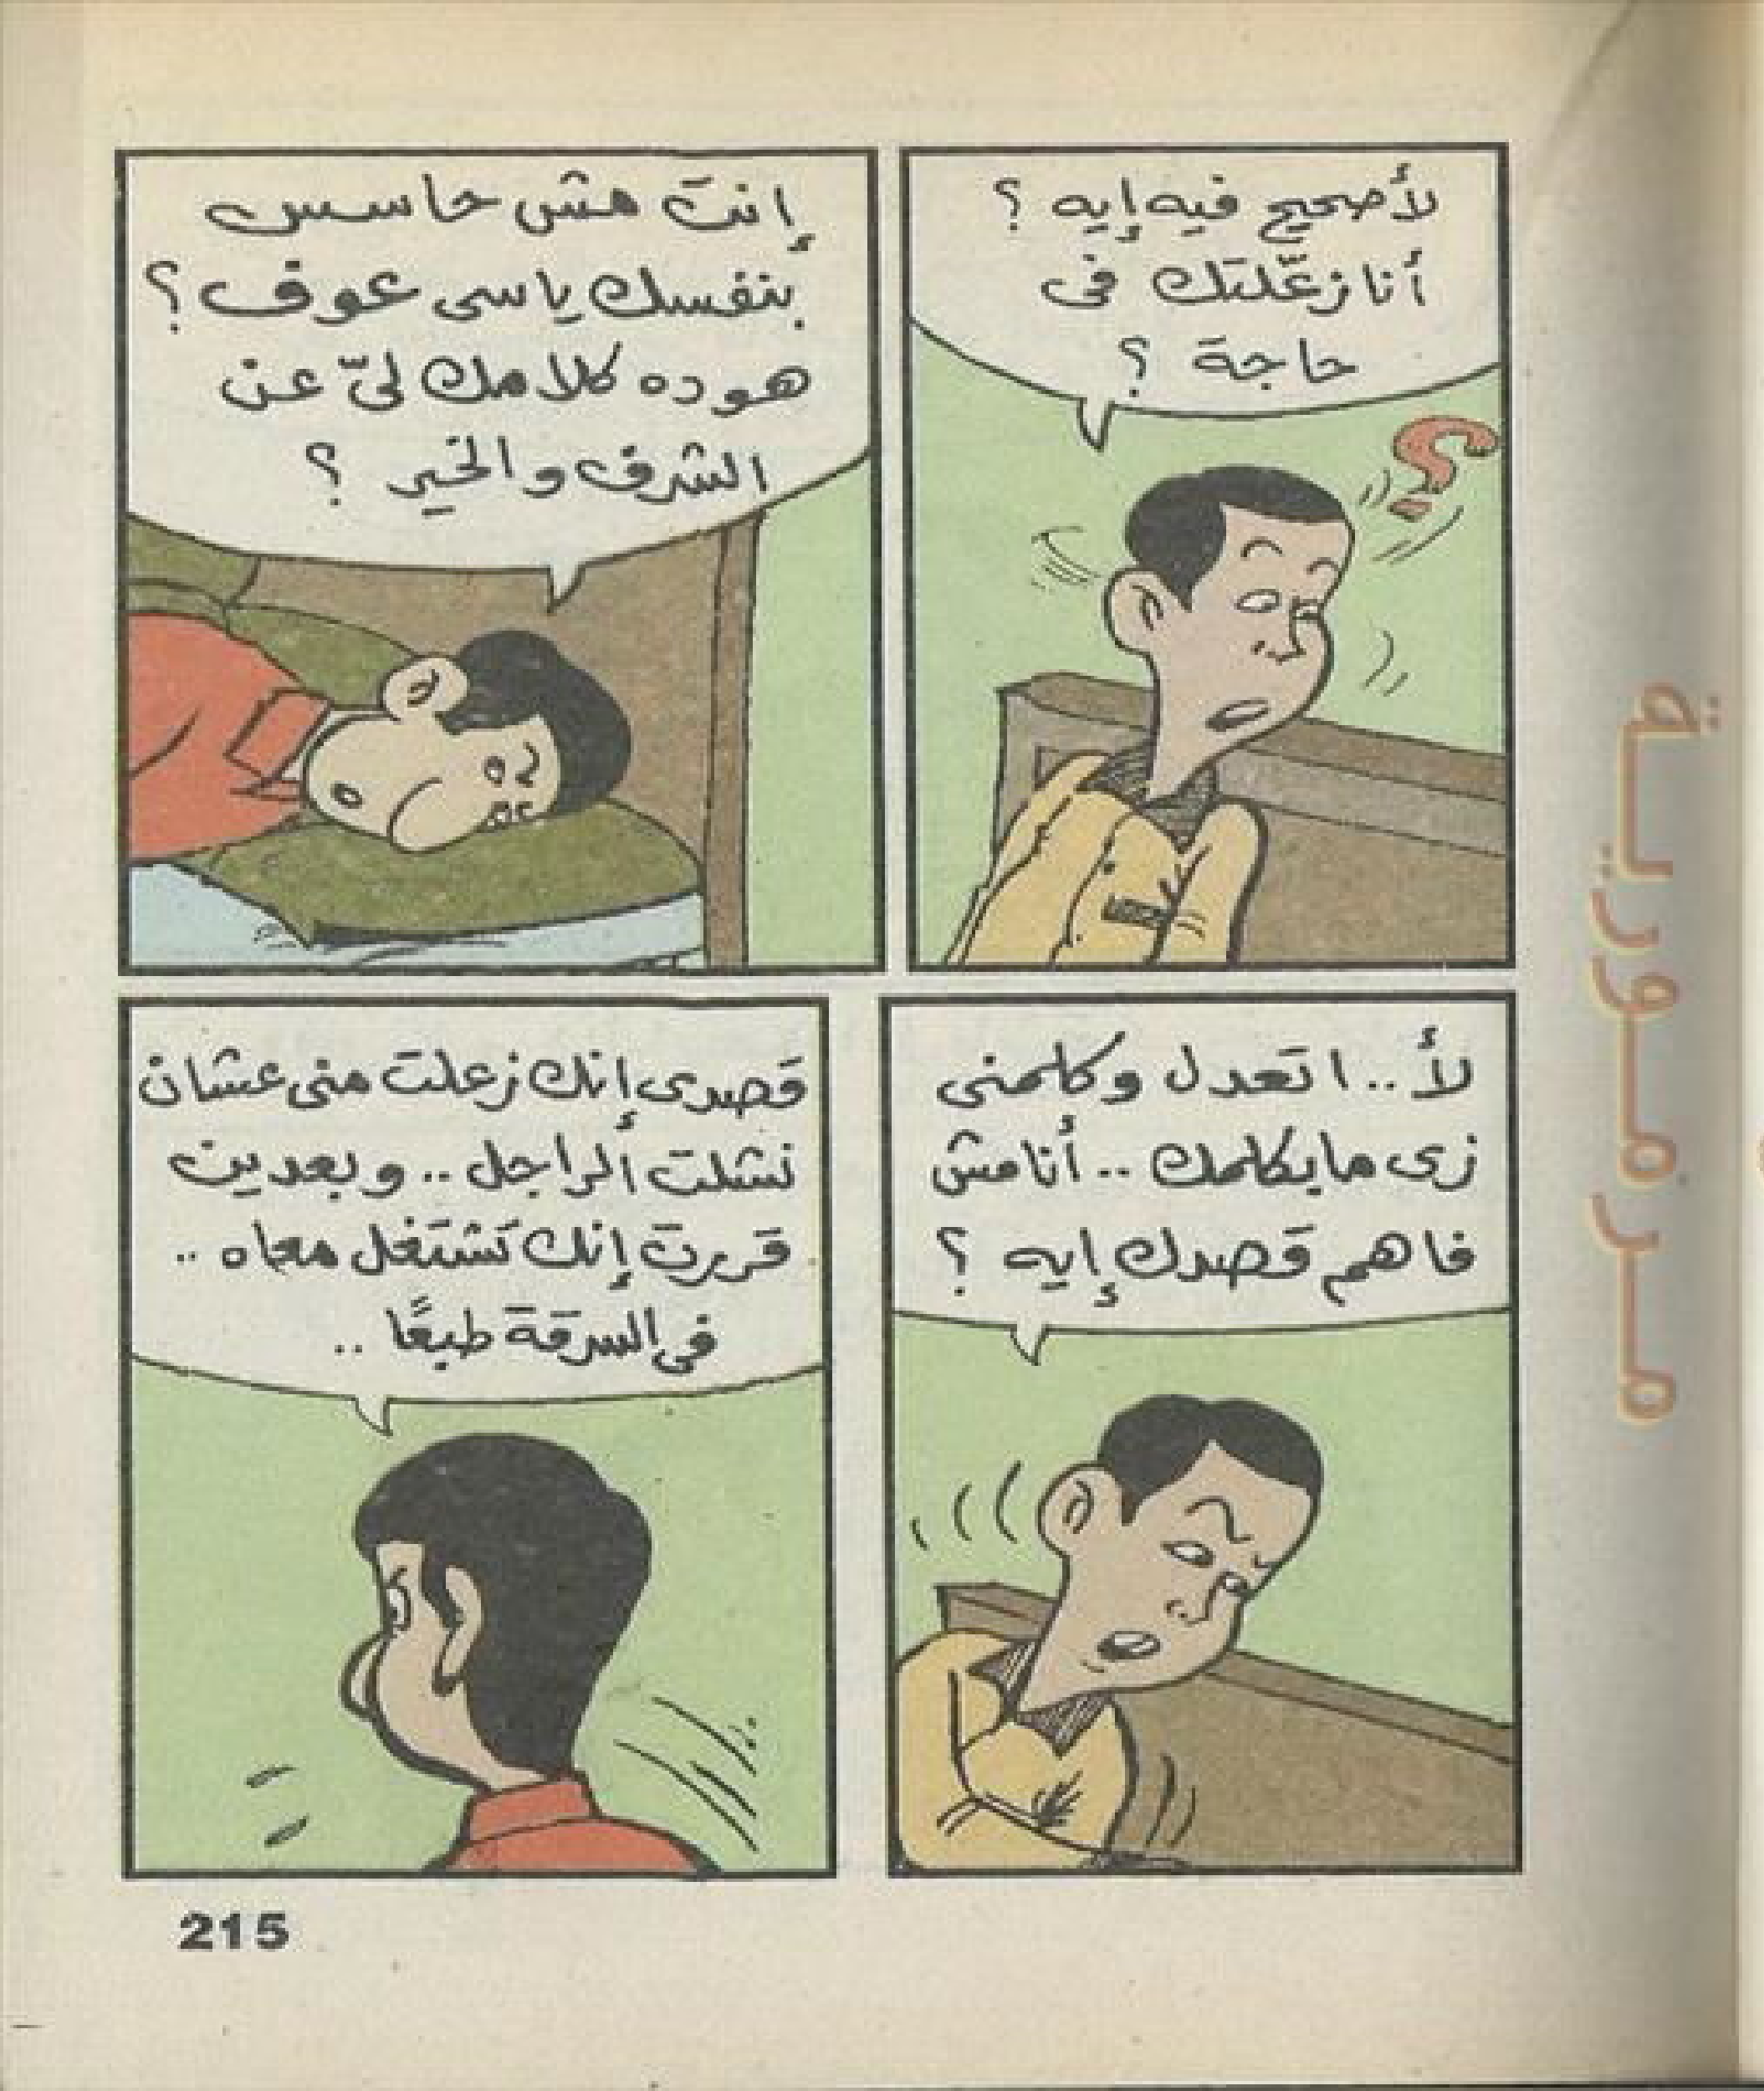 لأ صحيح فيه إيه ؟
أنا زعّلتك فى
حاجة ؟
إنت مش حاسس
بنفسك يا سى عوف ؟
هو ده كلامك لىّ عن
الشرف والخير ؟
لأ .. اتعدل وكلمنى
زى ما بكلمك .. أنا مش
فاهم قصدك إيه ؟
قصدى إنك زعلت منى عشان
نشلت الراجل .. وبعدين
قررت إنك تشتغل معاه ..
فى السرقة طبعًا ..
215
مرمورية